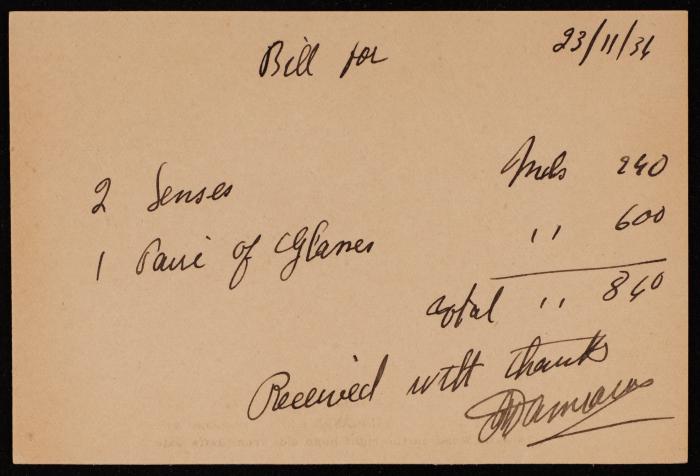 23/11/34
Bill for
2 lenses Mds 240
1 Paire of Glasses ,, 600
Total ,, 840
Received with thanks